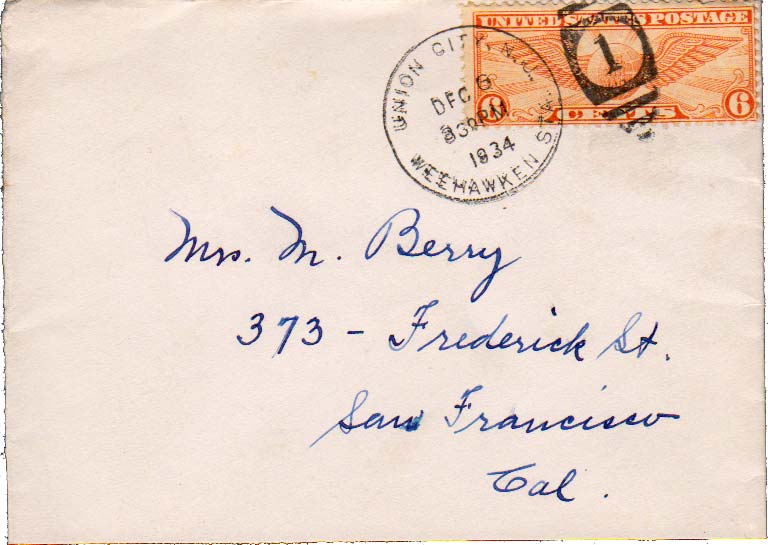 UNITED STATES POSTAGE
6 CENTS 6
1
UNION CITY, N.J.
DEC 6
830PM
1934
WEEHAWKEN STA.
Mrs. M. Berry
373 - Frederick St.
San Francisco
Cal.